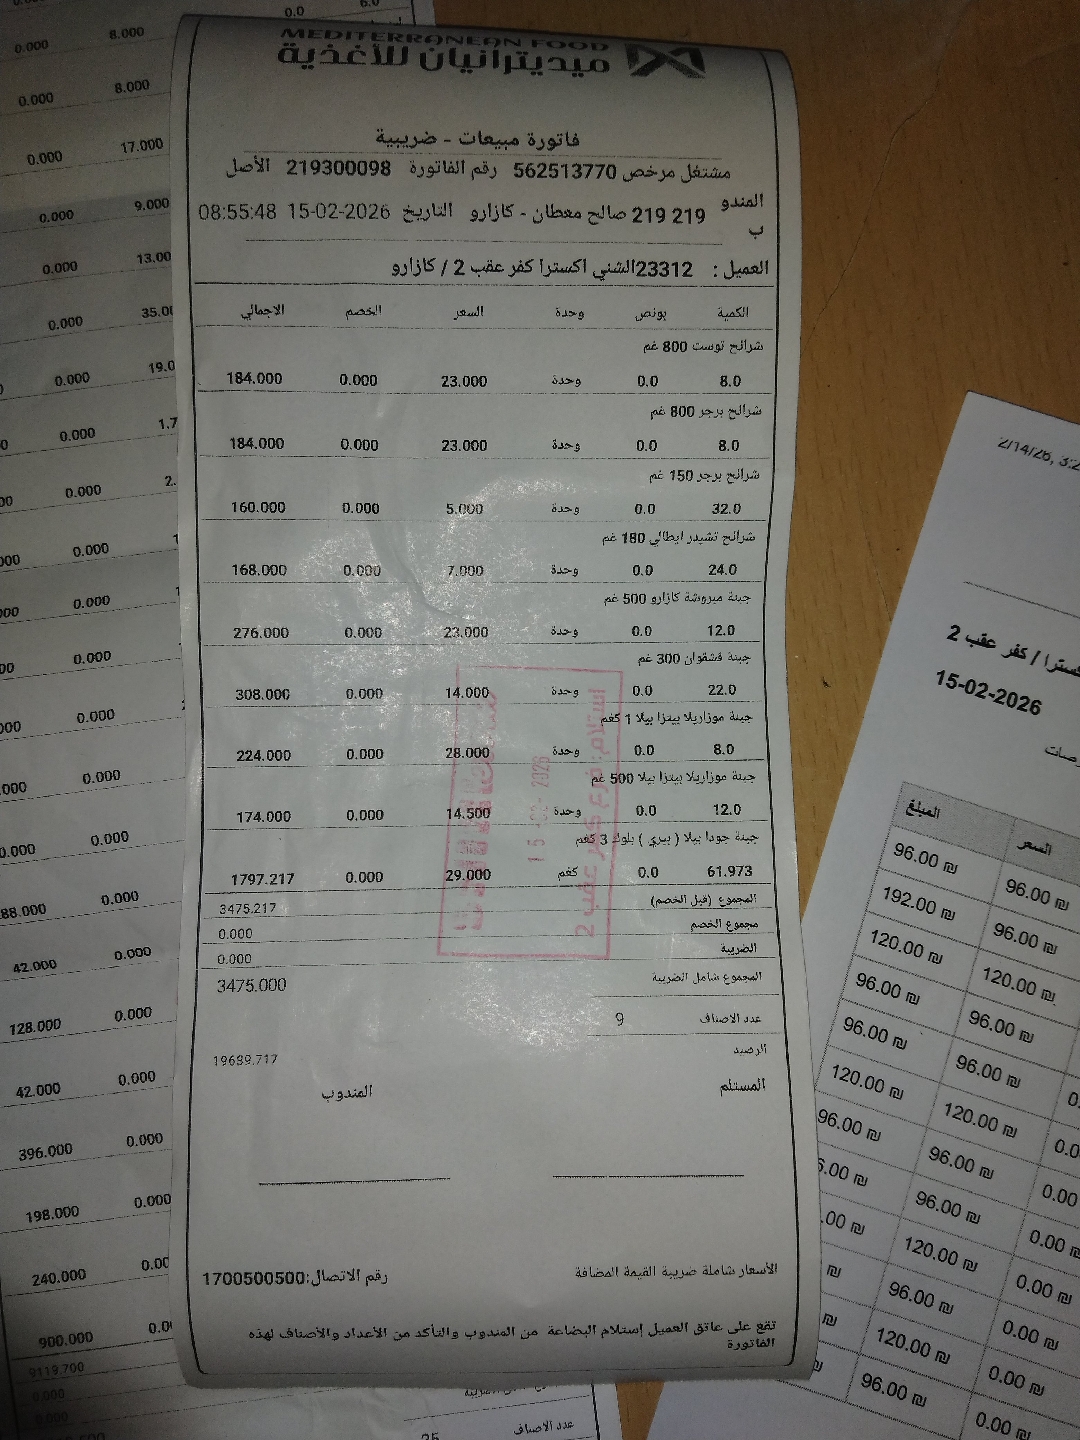 MEDITERRANEAN FOOD
ميديترانيان للأغذية
فاتورة مبيعات - ضريبية
مشتغل مرخص 562513770 رقم الفاتورة 219300098 الأصل
المندوب 219 219 صالح معطان - كازارو التاريخ 15-02-2026 08:55:48
العميل : 23312الشني اكسترا كفر عقب 2 / كازارو
الكمية بونص وحدة السعر الخصم الاجمالي
شرائح توست 800 غم
8.0 0.0 وحدة 23.000 0.000 184.000
شرائح برجر 800 غم
8.0 0.0 وحدة 23.000 0.000 184.000
شرائح برجر 150 غم
32.0 0.0 وحدة 5.000 0.000 160.000
شرائح تشيدر ايطالي 180 غم
24.0 0.0 وحدة 7.000 0.000 168.000
جبنة مبروشة كازارو 500 غم
12.0 0.0 وحدة 23.000 0.000 276.000
جبنة قشقوان 300 غم
22.0 0.0 وحدة 14.000 0.000 308.000
جبنة موزاريلا بيتزا بيلا 1 كغم
8.0 0.0 وحدة 28.000 0.000 224.000
جبنة موزاريلا بيتزا بيلا 500 غم
12.0 0.0 وحدة 14.500 0.000 174.000
جبنة جودا بيلا ( بيري ) بلوك 3 كغم
61.973 0.0 كغم 29.000 0.000 1797.217
المجموع (قبل الخصم) 3475.217
مجموع الخصم 0.000
الضريبة 0.000
المجموع شامل الضريبة 3475.000
عدد الاصناف 9
الرصيد 19639.717
المستلم المندوب
الأسعار شاملة ضريبة القيمة المضافة رقم الاتصال:1700500500
تقع على عاتق العميل إستلام البضاعة من المندوب والتأكد من الأعداد والأصناف لهذه
الفاتورة
استلام: فرع كفر عقب 2
15 2026
0.0
0.000 8.000
0.000 8.000
0.000 17.000
0.000 9.000
0.000
0.000
0.000
0.000
0.000
0.000
0.000
0.000
0.000
0.000
0.000
0.000
42.000 0.000
128.000 0.000
42.000 0.000
396.000 0.000
198.000 0.000
240.000
900.000
9119.700
0.000
0.000
عدد الاصناف
كفر عقب 2
15-02-2026
المبلغ السعر
96.00 ₪ 96.00 ₪
192.00 ₪ 96.00 ₪
120.00 ₪ 120.00 ₪
96.00 ₪ 96.00 ₪
96.00 ₪ 96.00 ₪
120.00 ₪ 120.00 ₪
96.00 ₪ 96.00 ₪
96.00 ₪ 0.00
120.00 ₪ 0.00 ₪
96.00 ₪ 0.00 ₪
120.00 ₪ 0.00 ₪
96.00 ₪ 0.00 ₪